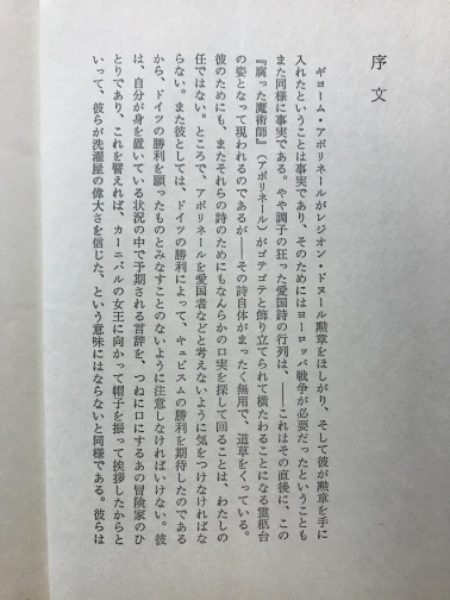 序文
ギヨーム・アポリネールがレジオン・ドヌール勲章をほしがり、そして彼が勲章を手に
入れたということは事実であり、そのためにはヨーロッパ戦争が必要だったということも
また同様に事実である。やや調子の狂った愛国詩の行列は、――これはその直後に、この
『腐った魔術師』（アポリネール）がゴテゴテと飾り立てられて横たわることになる霊柩台
の姿となって現われるのであるが――その詩自体がまったく無用で、道草をくっている。
彼のためにも、またそれらの詩のためにもなんらかの口実を探して回ることは、わたしの
任ではない。ところで、アポリネールを愛国者などと考えないように気をつけなければな
らない。また彼としては、ドイツの勝利によって、キュビスムの勝利を期待したのである
から、ドイツの勝利を願ったものとみなすことのないように注意しなければいけない。彼
は、自分が身を置いている状況の中で予期される言辞を、つねに口にするあの冒険家のひ
とりであり、これを譬えれば、カーニバルの女王に向かって帽子を振って挨拶したからと
いって、彼らが洗濯屋の偉大さを信じた、という意味にはならないと同様である。彼らは